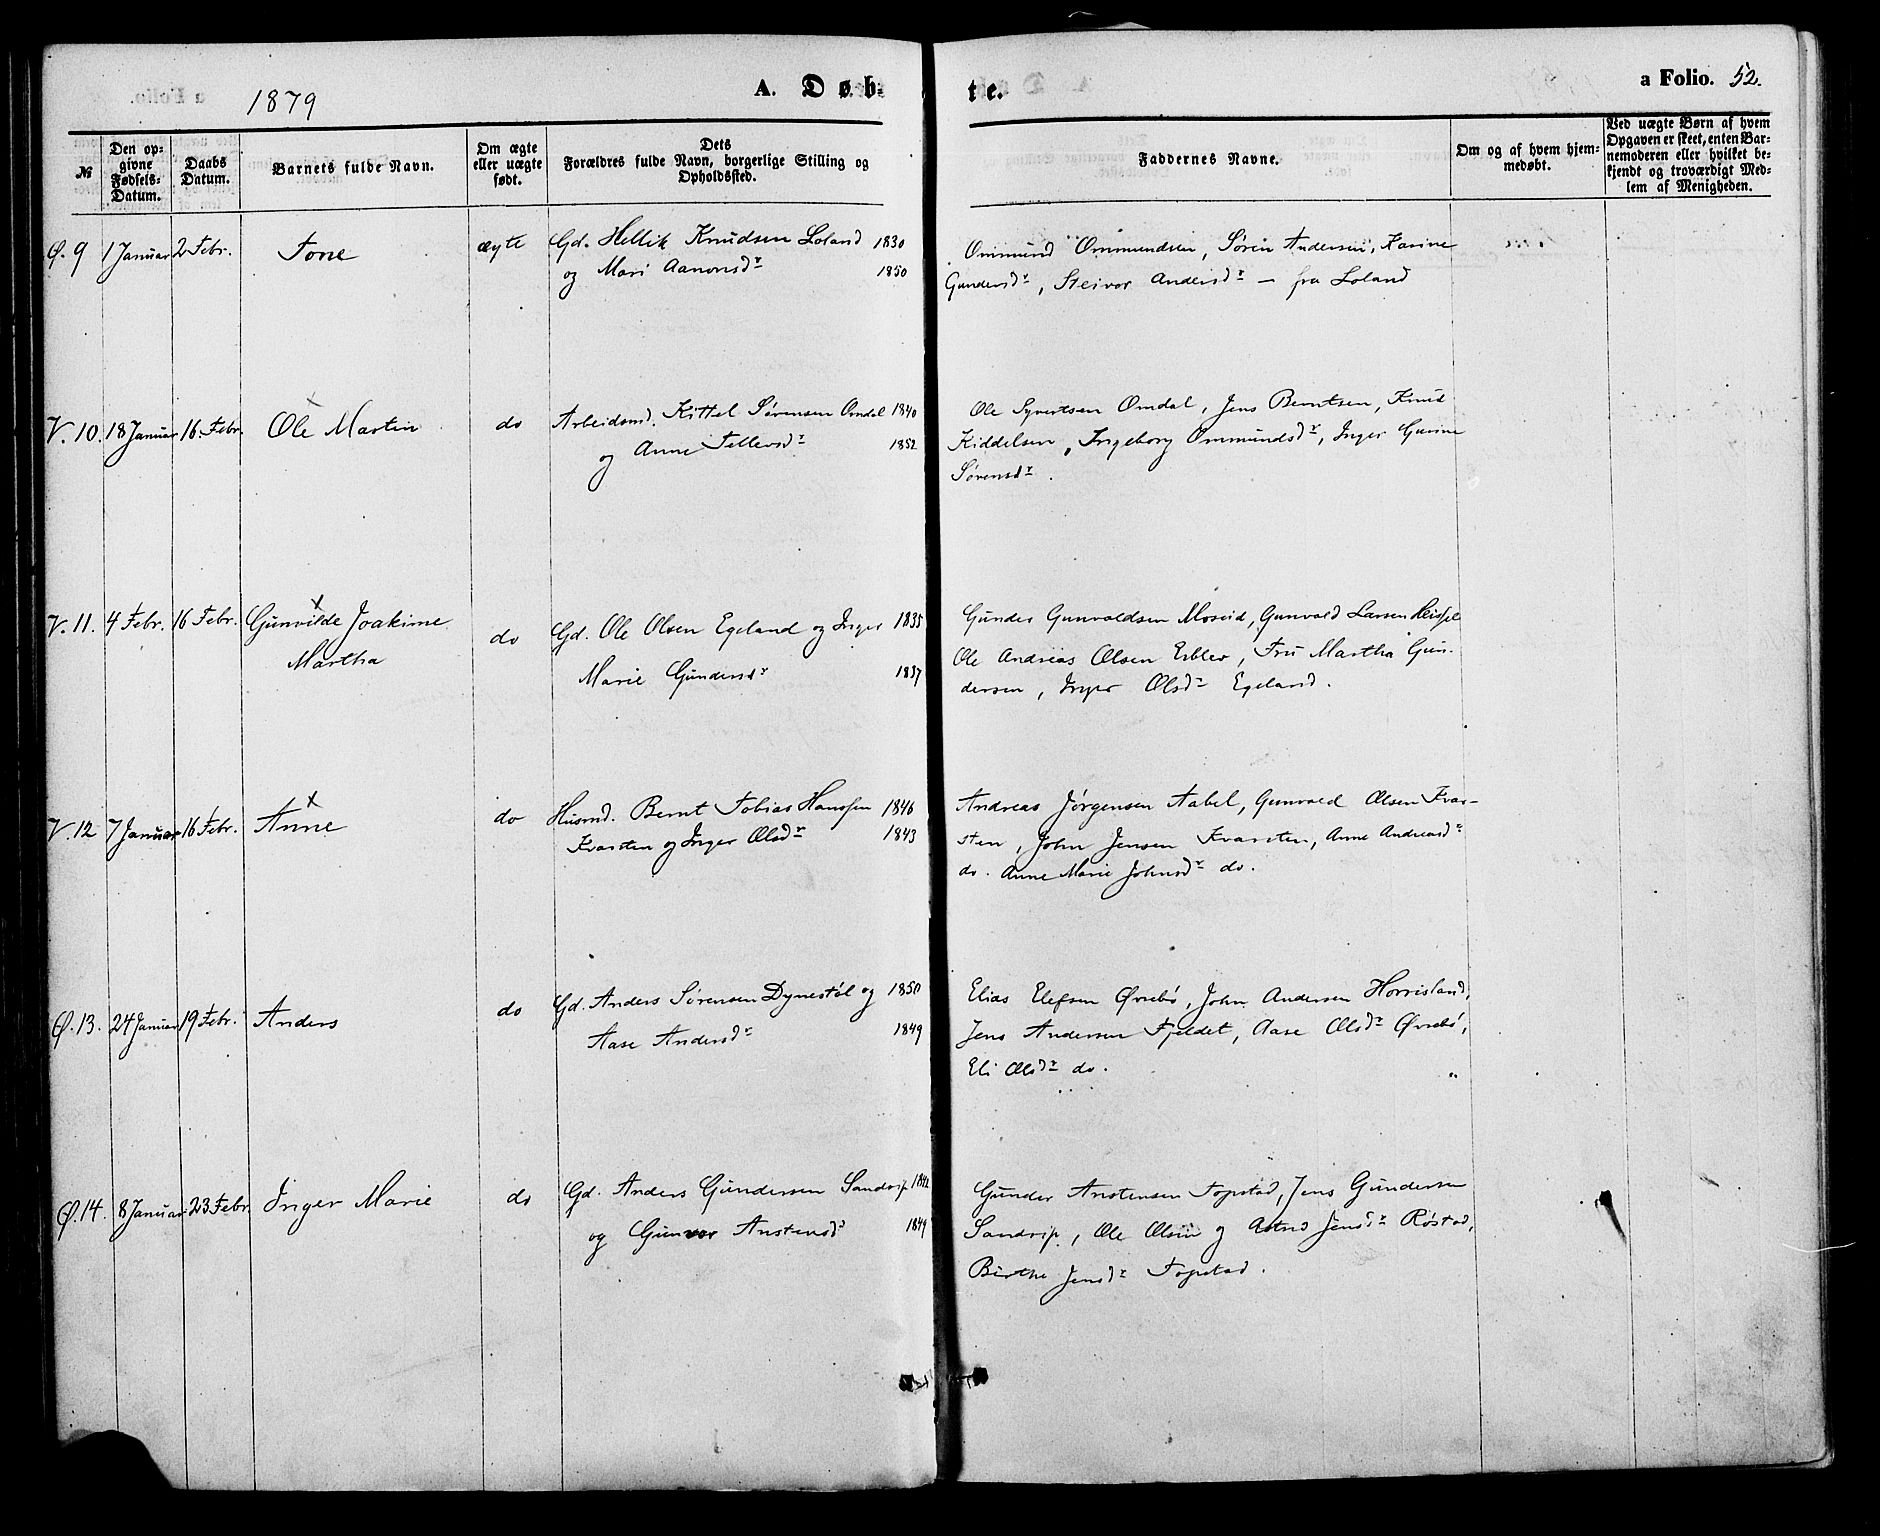 1879
A. Døbte.
a Folio. 52.
№
Den opgivne Fødsels-Datum.
Daabs Datum.
Barnets fulde Navn.
Om ægte eller uægte født.
Dets Forældres fulde Navn, borgerlige Stilling og Opholdssted.
Faddernes Navne.
Om og af hvem hjemmedøbt.
Ved uægte Børn af hvem Opgaven er skeet, enten Barnemoderen eller hvilket bekjendt og troværdigt Medlem af Menigheden.
Ø. 9 1 Januar 2 Febr. Tone ægte Gd. Hellik Knudsen Loland 1830
og Mari Aanonsdr 1850
Ommund Ommundsen, Søren Andersen, Karine
Gundersdr, Steivor Andersdr — fra Loland
V. 10. 18 Januar 16. Febr. Ole Martin do Arbeidsmd. Kittel Sørensen Omdal 1840
og Anne Tellevsdr 1852
Ole Syvertsen Omdal, Jens Berntsen, Knud
Kiddelsen, Ingeborg Ommundsdr, Inger Gurine
Sørensdr.
V. 11. 4 Febr. 16 Febr. Gunvilde Joakime
Martha
do Gd. Ole Olsen Egeland og Inger 1835
Marie Gundersdr 1837
Gunder Gunvaldsen Moseid, Gunvald Larsen
Ole Andreas Olsen Erklev, Fru Martha Gun-
dersen, Inger Olsdr Egeland.
V. 12 7 Januar 16 Febr. Anne do Husmd. Bernt Tobias Hanssen 1846
Kvarsten og Inger Olsdr 1843
Andreas Jørgensen Aabel, Gunvald Olsen Kvar-
sten, John Jensen Kvarsten, Anne Andreasdr
do. Anne Marie Johnsdr do.
Ø. 13. 24 Januar 19 Febr. Anders do Gd. Anders Sørensen Dynestøl og 1850
Aase Andersdr 1849
Elias Elefsen Øvrebø, John Andersen Horrisland,
Jens Andersen Fjeldet, Aase Olsdr Øvrebø,
Eli Olsdr do.
Ø. 14. 8 Januar 23 Febr. Inger Marie do Gd. Anders Gundersen Sandrip 1842
og Gunvor Anstensdr 1849
Gunder Anstensen Topstad, Jens Gundersen
Sandrip, Ole Olsen og Astrid Jensdr Røstad,
Birthe Jensdr Topstad.